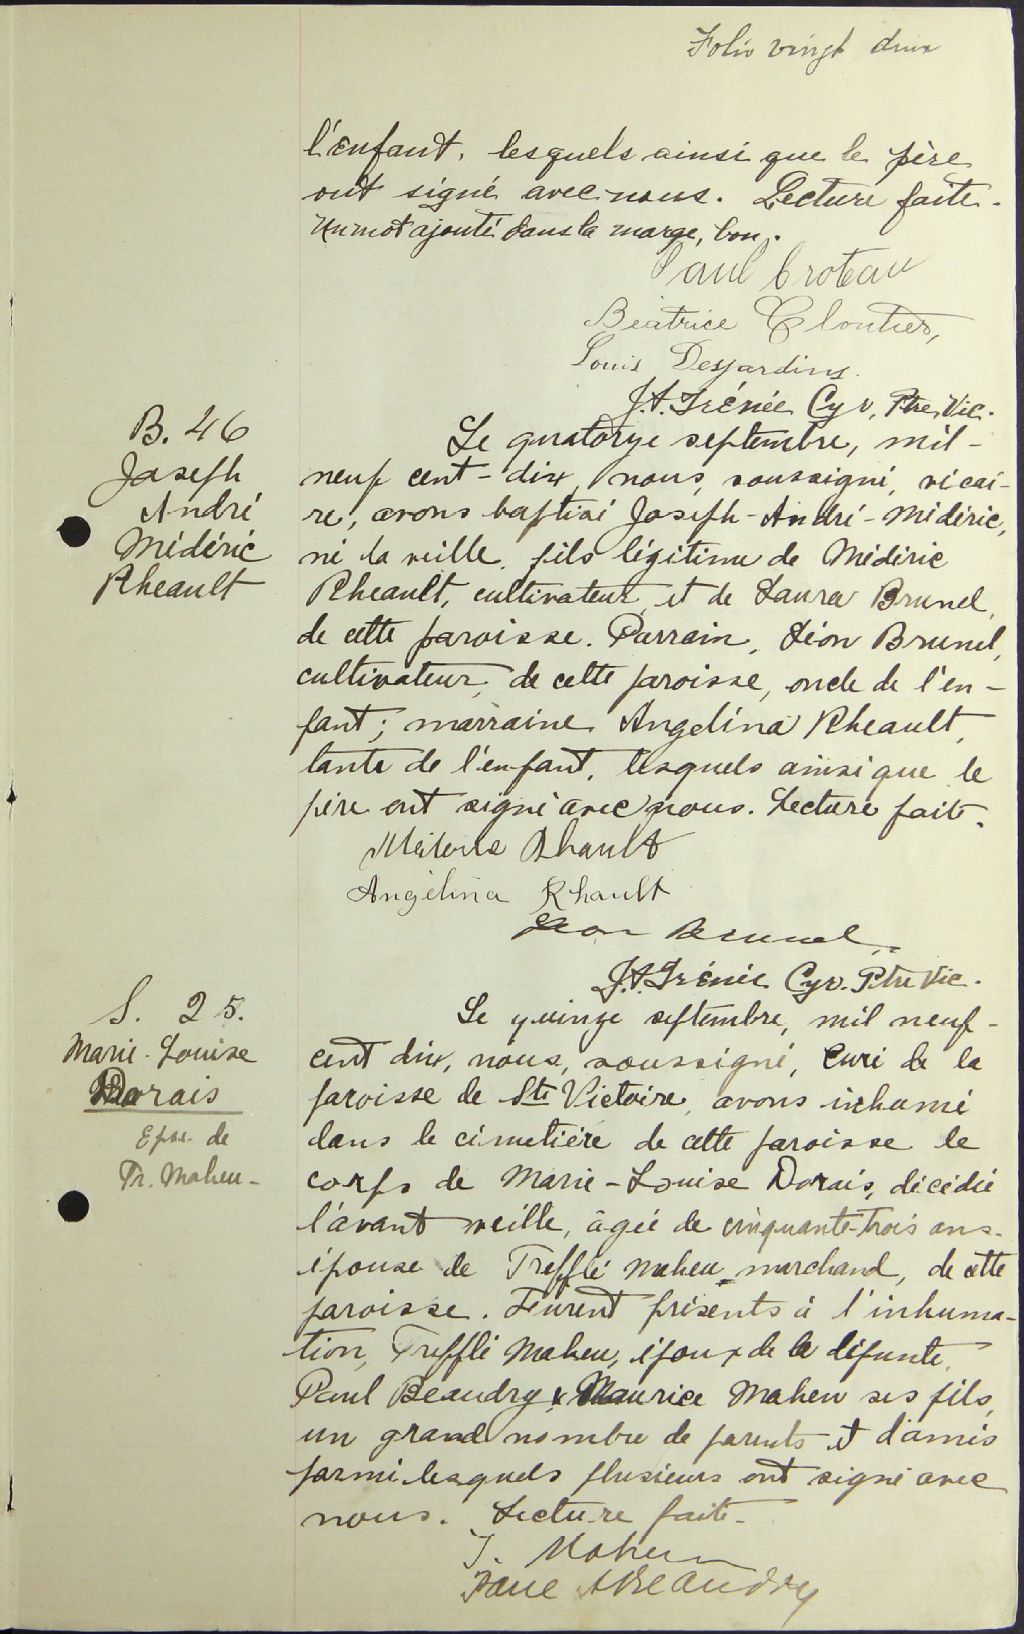 Folio vingt deux
l'enfant, lesquels ainsi que le père
ont signé avec nous. Lecture faite.
Un mot ajouté dans la marge, bon.
Paul Croteau
Béatrice Cloutier,
Louis Desjardins.
J.A. Irénée Cyr, Ptre, Vic.
B. 46
Joseph
André
Médéric
Rheault
Le quatorze septembre, mil-
neuf cent-dix, nous, soussigné, vicai-
re, avons baptisé Joseph-André-Médéric,
né la veille, fils légitime de Médéric
Rheault, cultivateur, et de Laura Brunel,
de cette paroisse. Parrain, Léon Brunel,
cultivateur, de cette paroisse, oncle de l'en-
fant; marraine Angelina Rheault,
tante de l'enfant, lesquels ainsi que le
père ont signé avec nous. Lecture faite.
Rhault
Angélina Rhault
Léon Brunel
J.A. Irénée Cyr. Ptre Vic.
S. 25.
Marie-Louise
Dorais
Epse de
Tr. Maheu-
Le quinze septembre, mil neuf-
cent dix, nous, soussigné, Curé de la
paroisse de Ste Victoire, avons inhumé
dans le cimetière de cette paroisse le
corps de Marie-Louise Dorais, décédée
l'avant veille, âgée de cinquante-trois ans.
épouse de Trefflé Maheu marchand, de cette
paroisse. Furent présents à l'inhuma-
tion, Trefflé Maheu, époux de la défunte,
Paul Beaudry & Maurice Maheu ses fils,
un grand nombre de parents et d'amis
parmi lesquels plusieurs ont signé avec
nous. Lecture faite-
T. Maheu
Beaudry